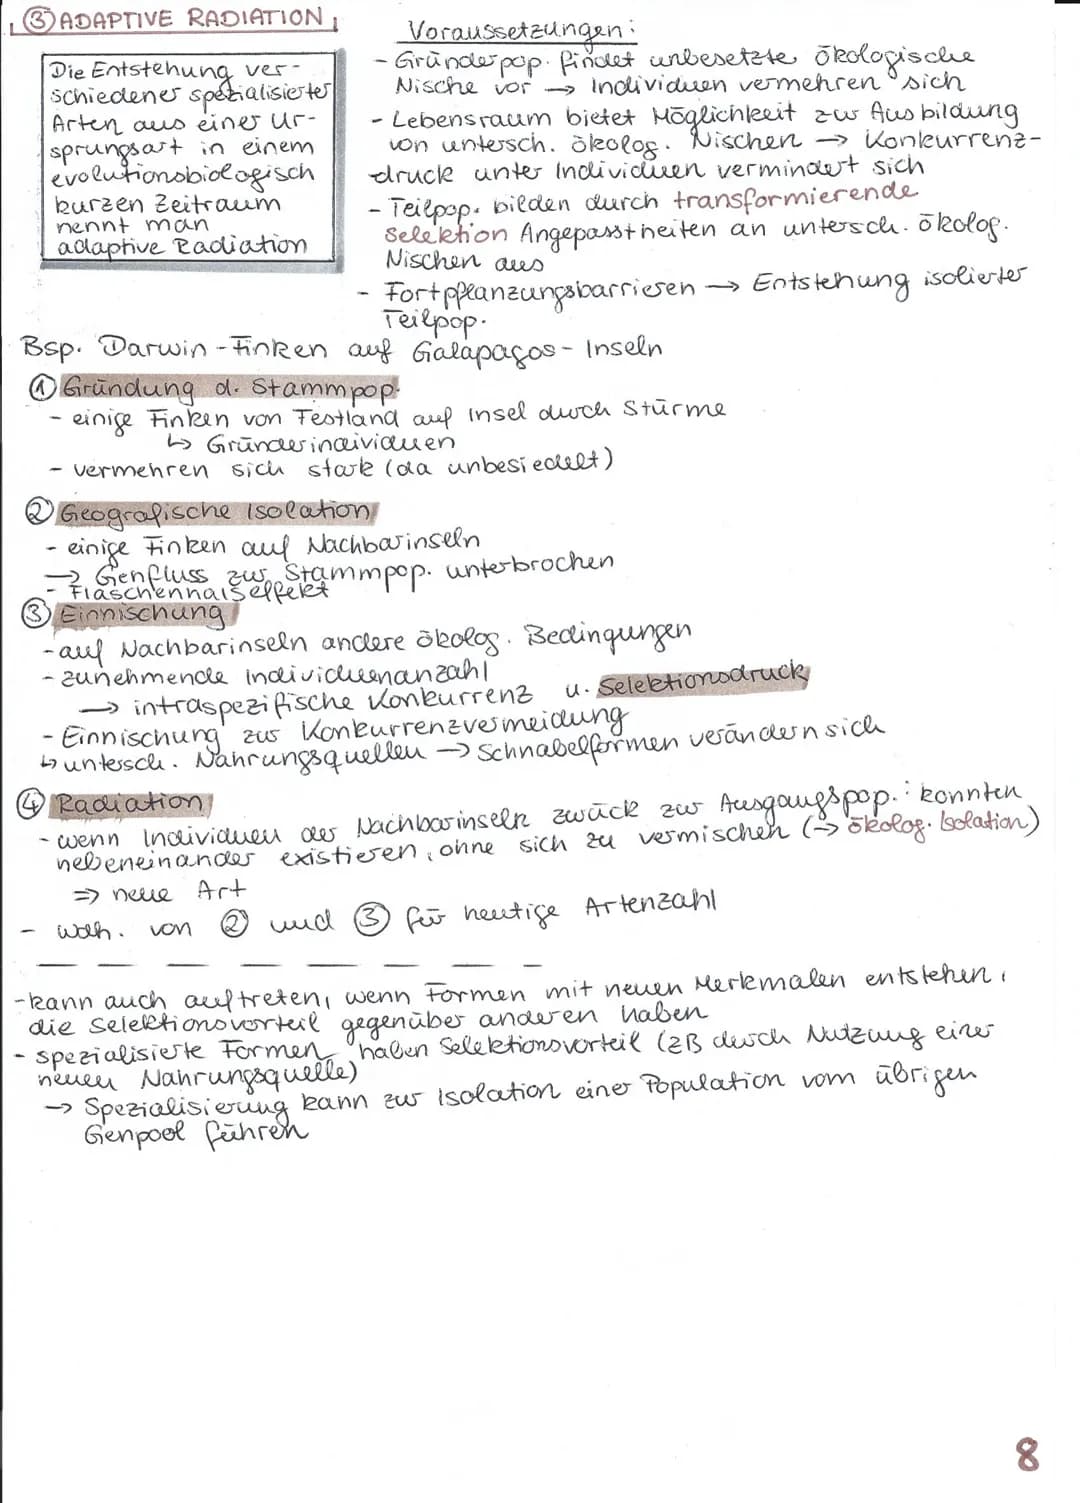 ③ ADAPTIVE RADIATION
Die Entstehung ver-
schiedener spezialisierter
Arten aus einer Ur-
sprungsart in einem
evolutionsbiologisch
kurzen Zeitraum
nennt man
adaptive Radiation
Voraussetzungen:
- Gründerpop. findet unbesetzte ökologische
Nische vor → Individuen vermehren sich
- Lebensraum bietet Möglichkeit zur Ausbildung
von untersch. ökolog. Nischen → Konkurrenz-
druck unter Individuen vermindert sich
- Teilpop. bilden durch transformierende
Selektion Angepasstheiten an untersch. ökolog.
Nischen aus
- Fortpflanzungsbarrieren → Entstehung isolierter
Teilpop.
Bsp. Darwin-Finken auf Galapagos-Inseln
① Gründung d. Stammpop.
- einige Finken von Festland auf Insel durch Stürme
↳ Gründerindividuen
- vermehren sich stark (da unbesiedelt)
② Geografische Isolation
- einige Finken auf Nachbarinseln
→ Genfluss zur Stammpop. unterbrochen
- Flaschenhalseffekt
③ Einnischung
- auf Nachbarinseln andere ökolog. Bedingungen
- zunehmende Individuenanzahl
→ intraspezifische Konkurrenz u. Selektionsdruck
- Einnischung zur Konkurrenzvermeidung
↳ untersch. Nahrungsquellen → Schnabelformen verändern sich
④ Radiation
- wenn Individuen der Nachbarinseln zurück zur Ausgangspop.: konnten
nebeneinander existieren, ohne sich zu vermischen (→ ökolog. Isolation)
⇒ neue Art
- wdh. von ② und ③ für heutige Artenzahl
- kann auch auftreten, wenn Formen mit neuen Merkmalen entstehen,
die Selektionsvorteil gegenüber anderen haben
- spezialisierte Formen haben Selektionsvorteil (zB durch Nutzung einer
neuen Nahrungsquelle)
→ Spezialisierung kann zur Isolation einer Population vom übrigen
Genpool führen
8